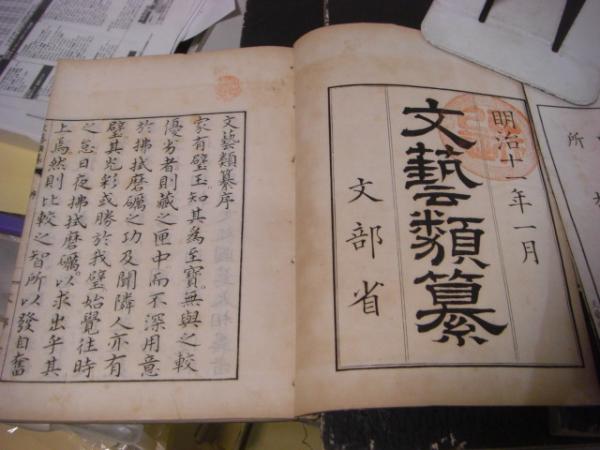 明治十一年一月
文藝類纂
文部省
文藝類纂序
家有璧玉知其為至寶無與之較
優劣者則藏之匣中而不深用意
於拂拭磨礪之功及聞隣人亦有
璧其光彩或勝於我璧始覺往時
之怠日夜拂拭磨礪以求出乎其
上焉然則比較之智所以發自奮
所